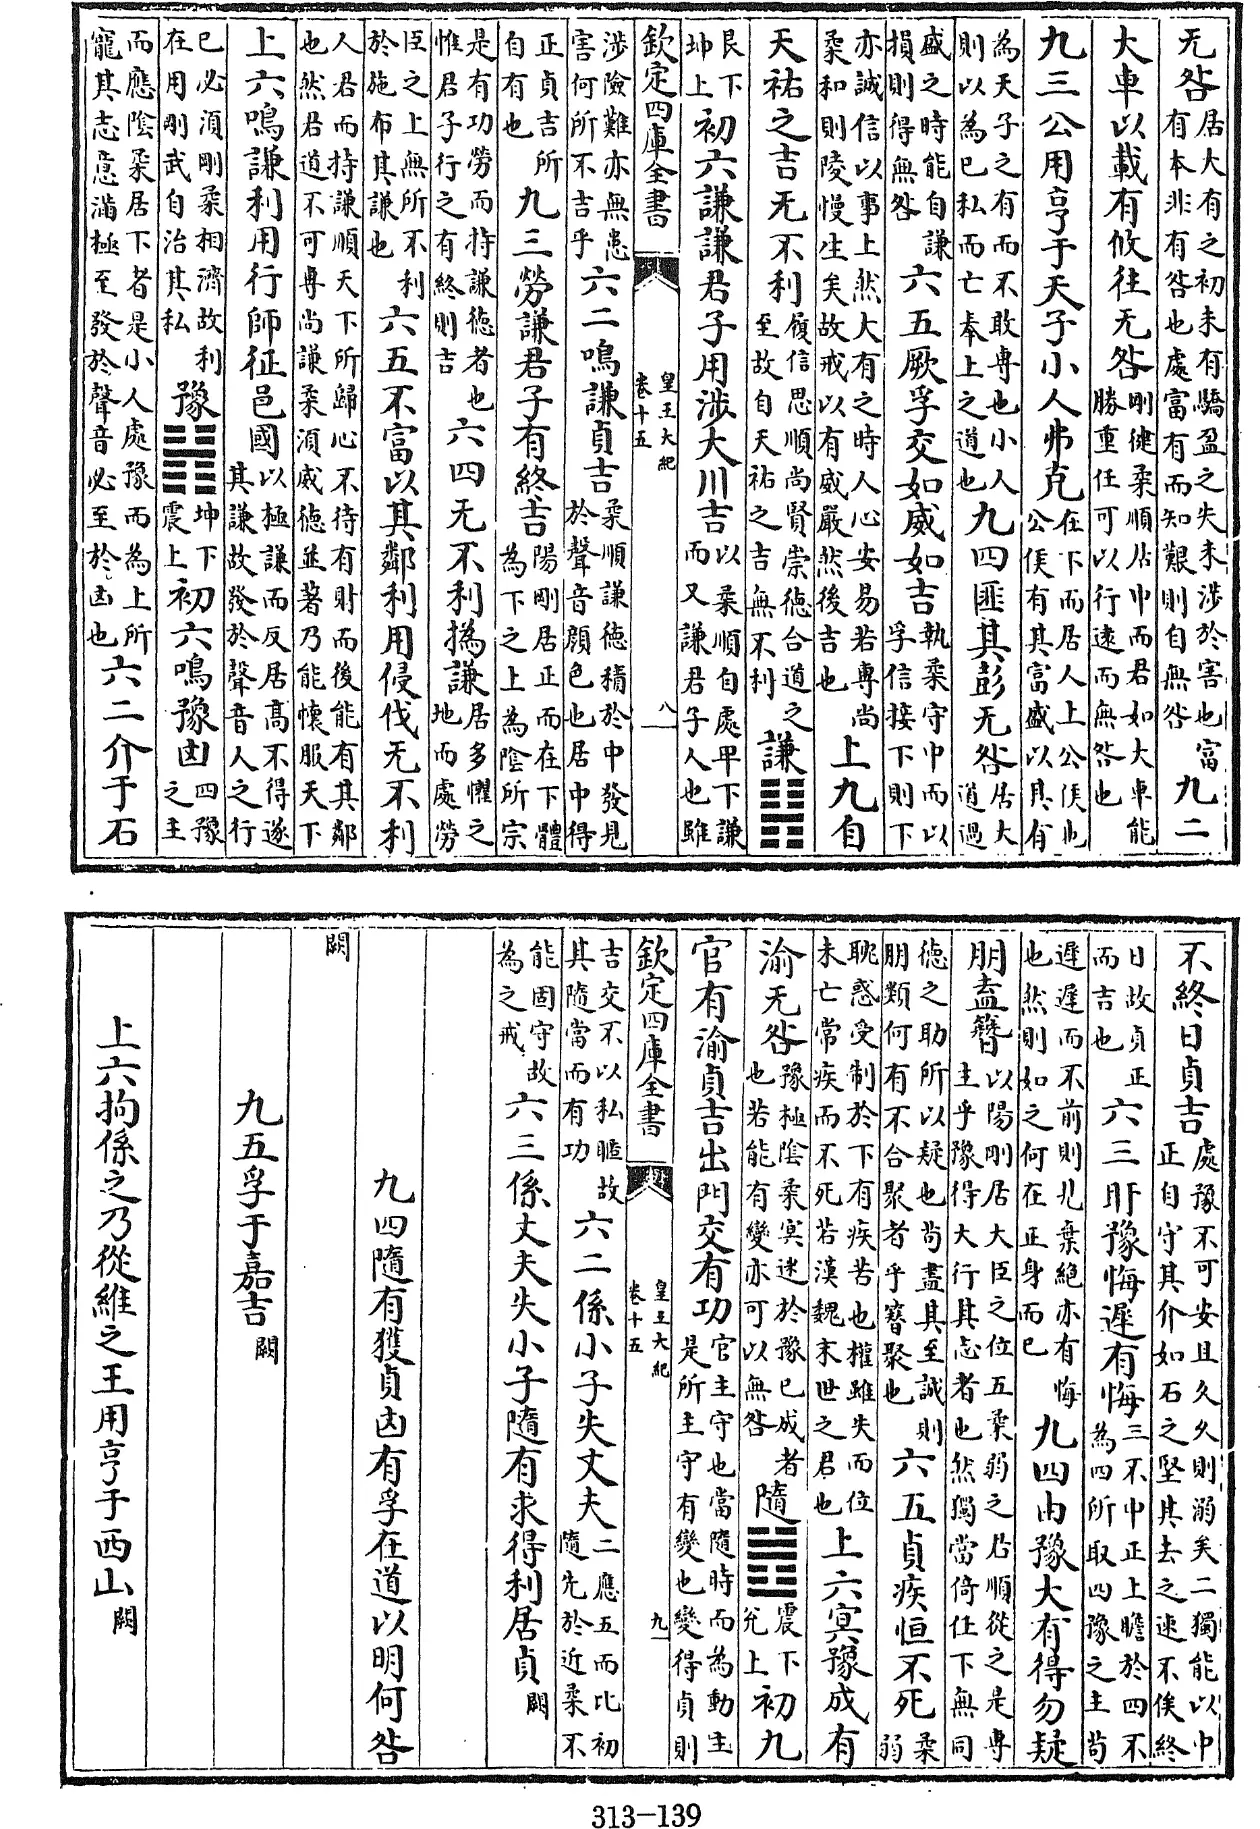 无咎居大有之初未有驕盈之失未涉於害也富有本非有咎也處富有而知艱則自無咎九二
大車以載有攸往无咎剛健柔順居中而君如大車能勝重任可以行逺而無咎也
九三公用亨于天子小人弗克在下而居人上公侯也公侯有其富盛以其有
為天子之有而不敢専也小人則以為已私而亡奉上之道也九四匪其彭无咎居大道過
盛之時能自謙損則得無咎六五厥孚交如威如吉執柔守中而以孚信接下則下
亦誠信以事上然大有之時人心安易若専尚柔和則陵慢生矣故戒以有威嚴然後吉也上九自
天祐之吉无不利履信思順尚賢崇徳合道之至故自天祐之吉無不利謙䷎
艮下坤上初六謙謙君子用涉大川吉以柔順自處卑下謙而又謙君子人也雖
欽定四庫全書 皇王大紀 卷十五 八
涉險難亦無患害何所不吉乎六二鳴謙貞吉柔順謙徳積於中發見於聲音顔色也居中得
正貞吉所自有也九三勞謙君子有終吉陽剛居正而在下體為下之上為陰所宗
是有功勞而持謙徳者也惟君子行之有終則吉六四无不利撝謙居多懼之地而處勞
臣之上無所不利於施布其謙也六五不富以其鄰利用侵伐无不利
人君而持謙順天下所歸心不待有財而後能有其鄰也然君道不可専尚謙柔須威徳並著乃能懷服天下
上六鳴謙利用行師征邑國以極謙而反居髙不得遂其謙故發於聲音人之行
已必須剛柔相濟故利在用剛武自治其私豫䷏坤下震上初六鳴豫凶四豫之主
而應陰柔居下者是小人處豫而為上所寵其志意滿極至發於聲音必至於凶也六二介于石
不終日貞吉處豫不可安且久久則溺矣二獨能以中正自守其介如石之堅其去之速不俟終
日故貞正而吉也六三盱豫悔遲有悔三不中正上瞻於四不為四所取四豫之主茍
遲遲而不前則見棄絶亦有悔也然則如之何在正身而已九四由豫大有得勿疑
朋盍簪以陽剛居大臣之位五柔弱之君順從之是専主乎豫得大行其志者也然獨當倚任下無同
徳之助所以疑也茍盡其至誠則朋類何有不合聚者乎簪聚也六五貞疾恒不死柔弱
耽惑受制於下有疾苦也權雖失而位未亡常疾而不死若漢魏末世之君也上六冥豫成有
渝无咎豫極陰柔冥迷於豫已成者也若能有變亦可以無咎隨䷐震下兊上初九
官有渝貞吉出門交有功官主守也當隨時而為動主是所主守有變也變得貞則
欽定四庫全書 皇王大紀 卷十五 九
吉交不以私暱故其隨當而有功六二係小子失丈夫二應五而比初隨先於近柔不
能固守故為之戒六三係丈夫失小子隨有求得利居貞闕
九四隨有獲貞凶有孚在道以明何咎
闕
九五孚于嘉吉闕
上六拘係之乃從維之王用亨于西山闕
313-139